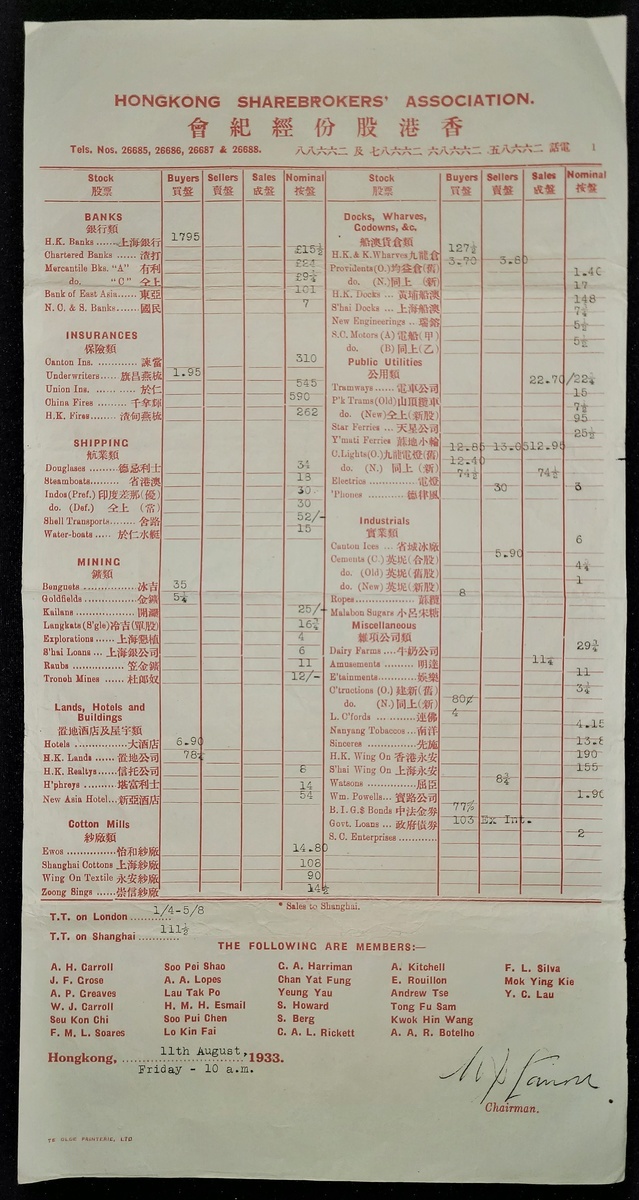 HONGKONG SHAREBROKERS' ASSOCIATION.
會紀經份股港香
Tels. Nos. 26685, 26686, 26687 & 26688. 八八六六二 及 七八六六二 六八六六二 五八六六二 話電 1
Stock Buyers Sellers Sales Nominal
股票 買盤 賣盤 成盤 按盤
BANKS
銀行類
H.K. Banks ...... 上海銀行 1795
Chartered Banks ...... 渣打 £15½
Mercantile Bks. "A" 有利 £24
do. "C" 仝上 £9¼
Bank of East Asia ...... 東亞 101
N. C. & S. Banks ....... 國民 7
INSURANCES
保險類
Canton Ins. ............ 諫當 310
Underwriters ...... 旗昌燕梳 1.95
Union Ins. ............ 於仁 545
China Fires ...... 千拿孖 590
H.K. Fires ...... 渣甸燕梳 262
SHIPPING
航業類
Douglases ........ 德忌利士 34
Steamboats ...... 省港澳 18
Indos (Pref.) 印度差那(優) 30
do. (Def.) 仝上 (當) 30
Shell Transports ........ 舍路 52/-
Water-boats ..... 於仁水艇 15
MINING
鑛類
Benguets ............ 冰吉 35
Goldfields ............ 金鑛
Kailans ............ 開灤 25/-
Langkats (S'gle) 冷吉(單股)
Explorations ..... 上海懇植 4
S'hai Loans ... 上海銀公司 6
Raubs ............ 笠金鑛 11
Tronoh Mines ...... 杜郎奴 12/-
Lands, Hotels and
Buildings
置地酒店及屋宇類
Hotels ............... 大酒店 6.90
H.K. Lands ...... 置地公司
H.K. Realtys ... 信托公司 8
H'phreys ...... 堪富利士 14
New Asia Hotel ... 新亞酒店 54
Cotton Mills
紗廠類
Ewos ............... 怡和紗廠 14.80
Shanghai Cottons 上海紗廠 108
Wing On Textile 永安紗廠 90
Zoong Sings ...... 崇信紗廠 14½
Stock Buyers Sellers Sales Nominal
股票 買盤 賣盤 成盤 按盤
Docks, Wharves,
Godowns, &c.
船澳貨倉類
H.K. & K. Wharves 九龍倉 127½
Providents (O.) 均益倉(舊) 3.70 3.80
do. (N.) 同上 (新) 1.40
H.K. Docks ... 黃埔船澳 17
S'hai Docks ... 上海船澳 148
New Engineerings .. 瑞鎔 7¼
S.C. Motors (A) 電船(甲) 5½
do. (B) 同上(乙) 5½
Public Utilities
公用類
Tramways ...... 電車公司 22.70/22¾
P'k Trams (Old) 山頂纜車 15
do. (New) 仝上(新股) 7½
Star Ferries ... 天星公司 95
Y'mati Ferries 蔴地小輪 25½
C. Lights (O.) 九龍電燈(舊) 12.85 13.05 12.95
do. (N.) 同上 (新) 12.40
Electrics ............ 電燈 74½ 74½
'Phones ............ 德律風 30 3
Industrials
實業類
Canton Ices ... 省城冰廠 6
Cements (C.) 英坭(合股) 5.90
do. (Old) 英坭(舊股)
do. (New) 英坭(新股) 1
Ropes ............ 蔴纜 8
Malabon Sugars 小呂宋糖
Miscellaneous
雜項公司類
Dairy Farms .... 牛奶公司 29¾
Amusements ........ 明達 11¼
E'tainments ........ 娛樂 11
C'tructions (O.) 建新(舊) 3¼
do. (N.) 同上(新) 80¢
L. C'fords ........ 連佛 4
Nanyang Tobaccos ... 南洋 4.15
Sinceres ............ 先施
H.K. Wing On 香港永安 190
S'hai Wing On 上海永安 155
Watsons ............ 屈臣 8¾
Wm. Powells ... 寶路公司 1.90
B. I. G. $ Bonds 中法金券 77%
Govt. Loans ... 政府債券 103 Ex Int.
S. C. Enterprises ............ 2
* Sales to Shanghai.
T.T. on London ............ 1/4-5/8
T.T. on Shanghai ............ 111½
THE FOLLOWING ARE MEMBERS:—
A. H. Carroll Soo Pei Shao C. A. Harriman A. Kitchell F. L. Silva
J. F. Grose A. A. Lopes Chan Yat Fung E. Rouillon Mok Ying Kie
A. P. Greaves Lau Tak Po Yeung Yau Andrew Tse Y. C. Lau
W. J. Carroll H. M. H. Esmail S. Howard Tong Fu Sam
Seu Kon Chi Soo Pui Chen S. Berg Kwok Hin Wang
F. M. L. Soares Lo Kin Fai C. A. L. Rickett A. A. R. Botelho
Hongkong, 11th August, 1933.
Friday - 10 a.m.
Chairman.
YE OLDE PRINTERIE, LTD